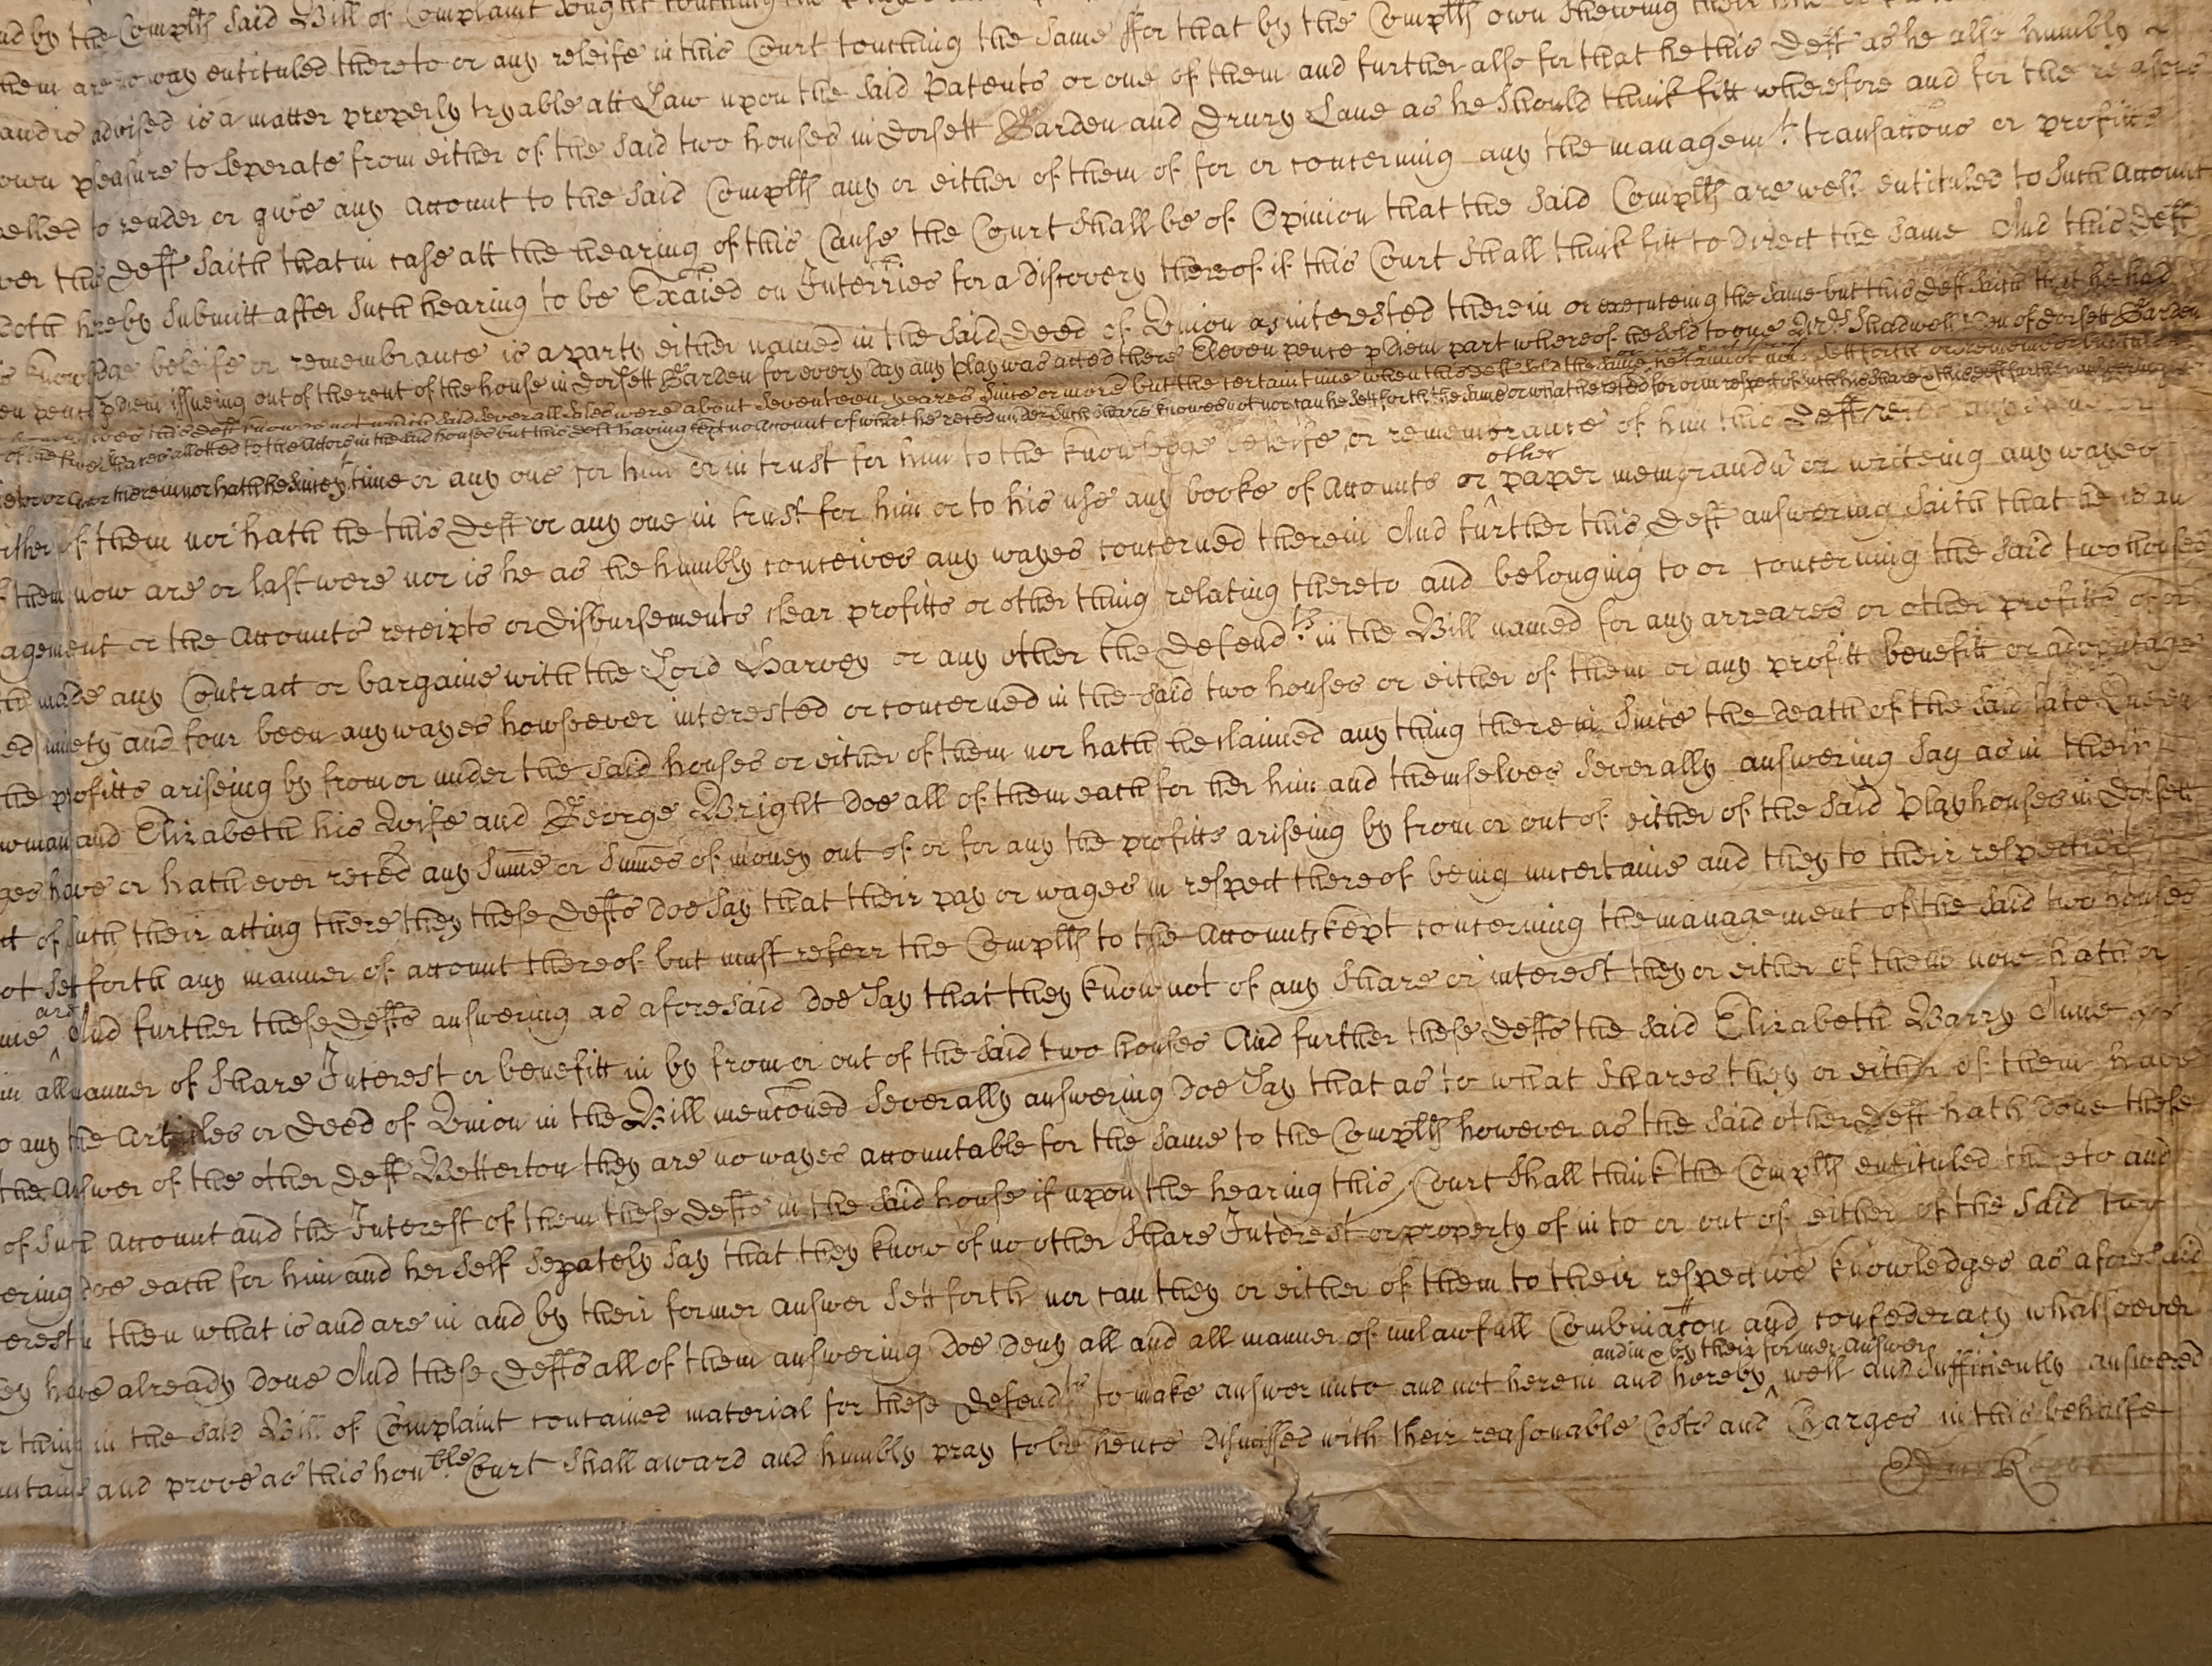 and by the Complts said Bill of Complaint sought touching the
them are no way entituled thereto or any releife in this Court touching the same ffor that by the Complts own shewing their
and is advised is a matter properly tryable att Law upon the said Patents or one of them and further also for that he this Deft as he also humbly
own pleasure to seperate from either of the said two houses in Dorsett Garden and Drury Lane as he should think fitt wherefore and for the reasons
pelled to render or give any Account to the said Complts any or either of them of for or concerning any the managemt transaccons or profitts
ver this Deft saith that in case att the hearing of this Cause the Court shall be of Opinion that the said Complts are well entituled to such Account
doth hreby submitt after such hearing to be Exaied on Interries for a discovery thereof if this Court shall think fitt to direct the same And this Deft
s knowledge beleife or remembrance is a party either named in the said Deed of Union as interested therein or executeing the same but this Deft saith that he had
en pence p diem issueing out of the rent of the house in Dorsett Garden for every day any play was acted there Eleven pence p diem part whereof he sold to one Mrs Shadwell of Dorsett Garden
this Deft knowes not which said severall sales were about seventeen yeares since or more but the certain time when this Deft sold the same he cannot sett forth or remember
of the shares allotted to the Actors in the said houses but this Deft having kept no Account of what he reced under such share knowes not nor can he sett forth the same or what he reced for or in respect of such his share this Deft further answering
therein nor hath he since yt time or any one for him or in trust for him to the knowledge beleife or remembrance of him this Deft reced any
either of them nor hath he this Deft or any one in trust for him or to his use any booke of Accounts or other paper memorandu or writeing any wayes
f them now are or last were nor is he as he humbly conceives any wayes concerned therein And further this Deft answering saith that he is an
agement or the Accounts receipts or disbursements clear profitts or other thing relating thereto and belonging to or concerning the said two houses
th made any Contract or bargaine with the Lord Harvey or any other the Defendts in the Bill named for any arreares or other profitts of or
ed ninety and four been anywayes howsoever interested or concerned in the said two houses or either of them or any profitt benefitt or advantage
the profitts ariseing by from or under the said houses or either of them nor hath he claimed any thing therein since the death of the said late Queen
wman and Elizabeth his Wife and George Bright doe all of them each for her him and themselves severally answering say as in their
ges have or hath ever reced any sume or sumes of money out of or for any the profitts ariseing by from or out of either of the said Playhouses in Dorsett
t of such their acting there they these Defts doe say that their pay or wages in respect thereof being uncertaine and they to their respective
ot set forth any manner of account thereof but must referr the Complts to the Accounts kept concerning the management of the said two houses
me are And further these Defts answering as aforesaid doe say that they know not of any share or interest they or either of them now hath or
in all manner of share Interest or benefitt in by from or out of the said two houses And further these Defts the said Elizabeth Barry Anne
o any the Articles or Deed of Union in the Bill menconed severally answering doe say that as to what shares they or either of them have
the Answer of the other Deft Betterton they are no wayes accountable for the same to the Complts however as the said other Deft hath done these
of such Account and the Interest of them these Defts in the said house if upon the hearing this Court shall think the Complts entituled thereto and
ering doe each for him and her self sepately say that they know of no other share Interest or property of in to or out of either of the said two
erest then what is and are in and by their former answer sett forth nor can they or either of them to their respective knowledges as aforesaid
ey have already done And these Defts all of them answering doe deny all and all manner of unlawfull Combinacon and confederacy whatsoever
r thing in the said Bill of Complaint contained material for these Defendts to make answer unto and not herein and hereby and in & by their former Answer well and sufficiently answered
ntaine and prove as this honble Court shall award and humbly pray to be hence dismissed with their reasonable Costs and Charges in this behalfe